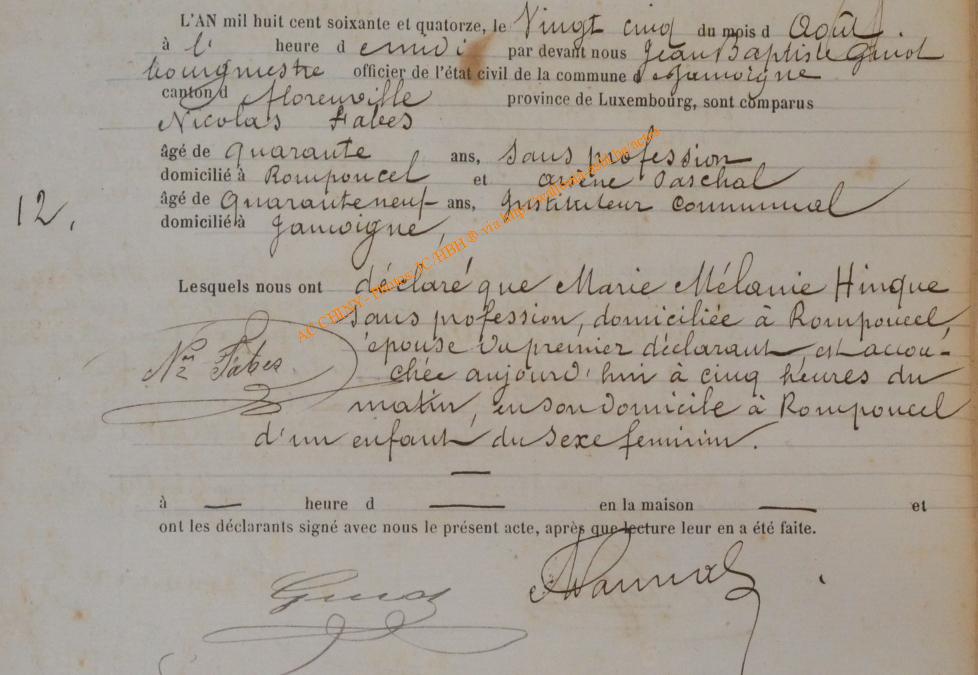 L'AN mil huit cent soixante et quatorze, le Vingt cinq du mois d Août.
à l' heure d emidi par devant nous Jean Baptiste Guiot
bourgmestre officier de l'état civil de la commune d Jamoigne
canton d Florenville province de Luxembourg, sont comparus
Nicolas Fabes
âgé de quarante ans, sans profession
domicilié à Romponcel et Arsène Paschal
âgé de Quarante neuf ans, Instituteur communal
12.
domicilié à Jamoigne,
Lesquels nous ont déclaré que Marie Mélanie Hinque
sans profession, domiciliée à Romponcel,
épouse du premier déclarant, est accou-
Nas Fabes
chée aujourd'hui à cinq heures du
matin, en son domicile à Romponcel
d'un enfant du sexe feminin.
à — heure d — en la maison — et
ont les déclarants signé avec nous le présent acte, après que lecture leur en a été faite.
Guiot
AC CHINY - Photos JC HBH ® via http://